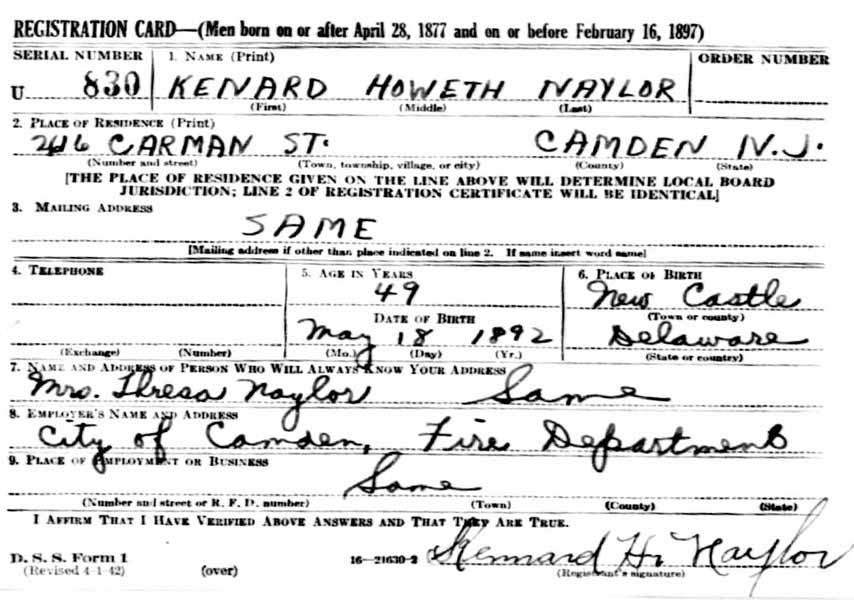 REGISTRATION CARD—(Men born on or after April 28, 1877 and on or before February 16, 1897)
SERIAL NUMBER 1. NAME (Print) ORDER NUMBER
U 830 KENARD HOWETH NAYLOR
(First) (Middle) (Last)
2. PLACE OF RESIDENCE (Print)
CARMAN ST. CAMDEN N.J.
(Number and street) (Town, township, village, or city) (County) (State)
[THE PLACE OF RESIDENCE GIVEN ON THE LINE ABOVE WILL DETERMINE LOCAL BOARD
JURISDICTION; LINE 2 OF REGISTRATION CERTIFICATE WILL BE IDENTICAL]
3. MAILING ADDRESS
SAME
[Mailing address if other than place indicated on line 2. If same insert word same]
4. TELEPHONE 5. AGE IN YEARS 6. PLACE OF BIRTH
49 New Castle
DATE OF BIRTH (Town or county)
May 18 1892 Delaware
(Exchange) (Number) (Mo.) (Day) (Yr.) (State or country)
7. NAME AND ADDRESS OF PERSON WHO WILL ALWAYS KNOW YOUR ADDRESS
Mrs. Thresa Naylor Same
8. EMPLOYER'S NAME AND ADDRESS
City of Camden, Fire Department
9. PLACE OF EMPLOYMENT OR BUSINESS
Same
(Number and street or R. F. D. number) (Town) (County) (State)
I AFFIRM THAT I HAVE VERIFIED ABOVE ANSWERS AND THAT THEY ARE TRUE.
D. S. S. Form 1 16—21630-2 Kennard H. Naylor
(Revised 4-1-42) (over) (Registrant's signature)